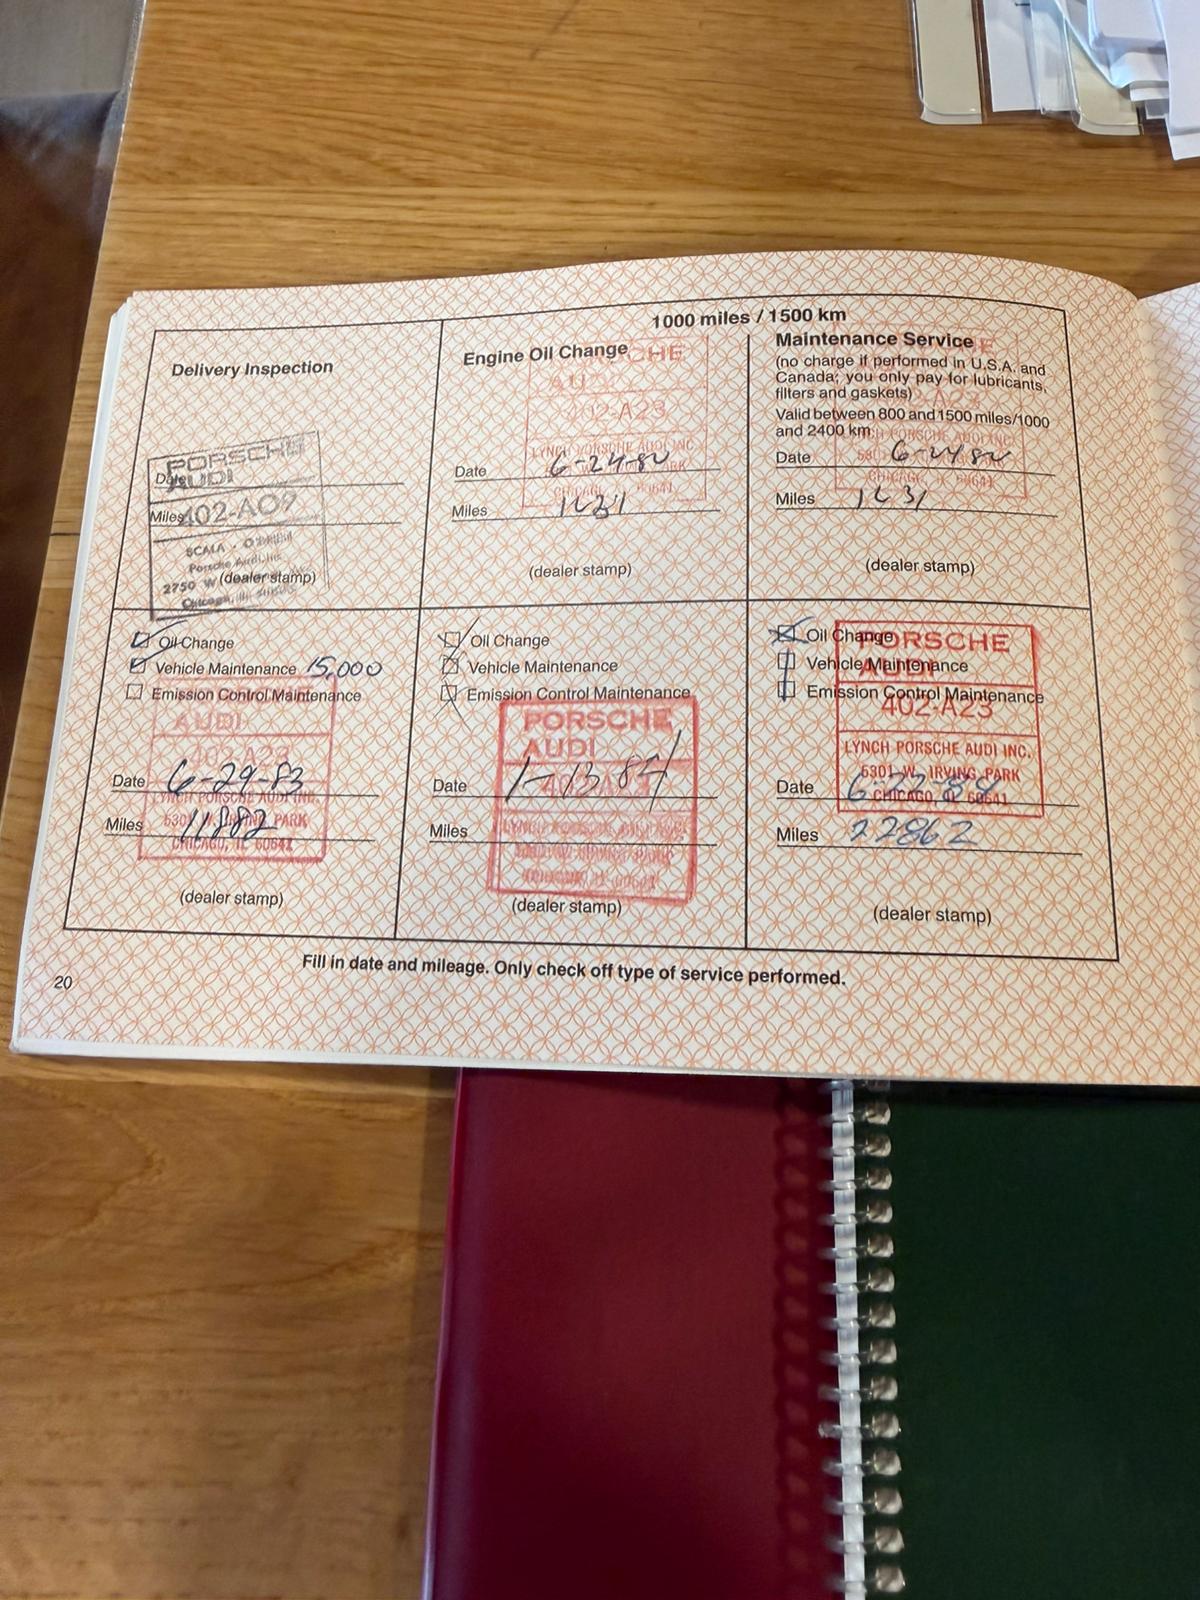 1000 miles / 1500 km
Delivery Inspection
PORSCHE
AUDI
Date
Miles 402-A09
SCALA - O'BRIEN
Porsche Audi, Inc.
2750 W
(dealer stamp)
Chicago, Ill.
Engine Oil Change
PORSCHE
AUDI
402-A23
LYNCH PORSCHE AUDI INC.
Date 6-24-82
PARK
CHICAGO, IL 60641
Miles 1631
(dealer stamp)
Maintenance Service
(no charge if performed in U.S.A. and
Canada; you only pay for lubricants,
filters and gaskets)
Valid between 800 and 1500 miles/1000
and 2400 km.
PORSCHE AUDI INC.
Date 6-24-82
CHICAGO, IL 60641
Miles 1631
(dealer stamp)
Oil Change
Vehicle Maintenance 15,000
Emission Control Maintenance
AUDI
402-A23
Date 6-29-83
LYNCH PORSCHE AUDI INC.
Miles 11882
5301 W. IRVING PARK
CHICAGO, IL 60641
(dealer stamp)
Oil Change
Vehicle Maintenance
Emission Control Maintenance
PORSCHE
AUDI
402-A23
Date 1-13-84
Miles
(dealer stamp)
Oil Change
Vehicle Maintenance
Emission Control Maintenance
PORSCHE
AUDI
402-A23
LYNCH PORSCHE AUDI INC.
5301 W. IRVING PARK
CHICAGO, IL 60641
Date
Miles 22862
(dealer stamp)
Fill in date and mileage. Only check off type of service performed.
20